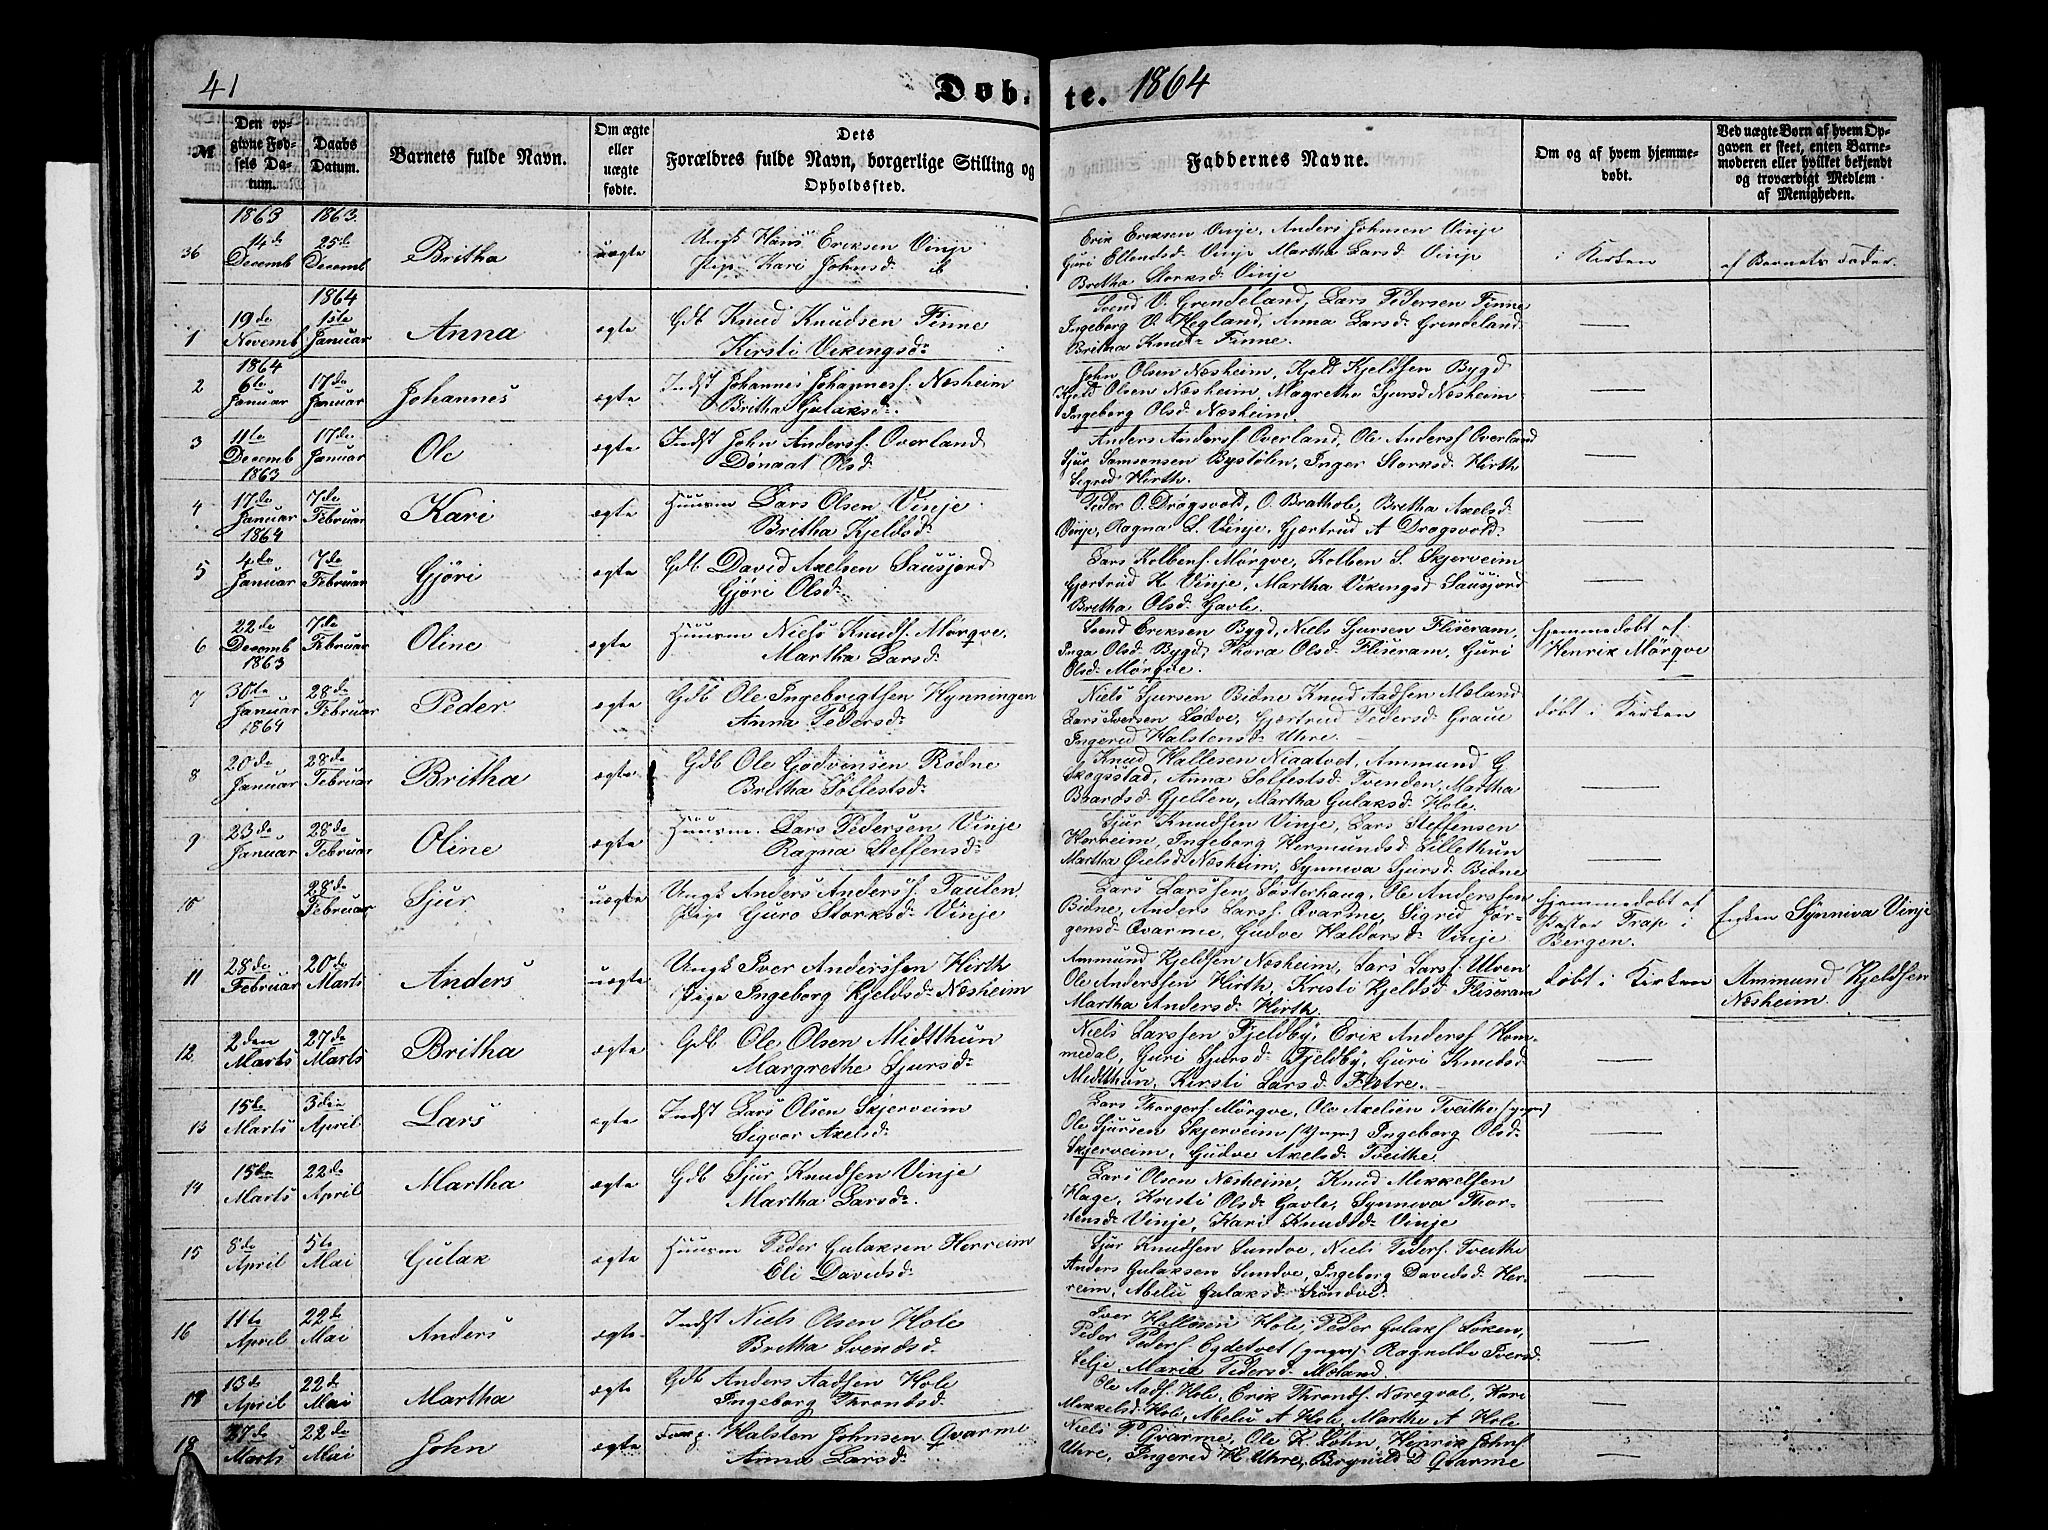 41
Døb-
te. 1864
№
Den op-
givne Fød-
sels Da-
tum.
Daabs
Datum.
Barnets fulde Navn.
Om ægte
eller
uægte
fødte.
Dets
Forældres fulde Navn, borgerlige Stilling og
Opholdssted.
Faddernes Navne.
Om og af hvem hjemme-
døbt.
Ved uægte Børn af hvem Op-
gaven er skeet, enten Barne-
moderen eller hvilket bekjendt
og troværdigt Medlem
af Menigheden.
36
1863
14de
Decemb
1863.
25de
Decemb
Britha
uægte
Ungk Hans Eriksen Vinje
Pige Kari Johnsd
Erik Eriksen Vinje, Anders Johnsen Vinje
Guri Ellendsd. Vinje Martha Larsd. Vinje
Bretha Storksd. Vinje
i Kirken
af Barnets Fader.
1
19de
Novemb
1864
1ste
Januar
Anna
ægte
Gdb Knud Knudsen Finne
Kirsti Vekingsd:
Svend V. Grindeland, Lars Pedersen Finne
Ingeborg V. Hegland, Anna Larsd. Grindeland
Britha Knutsd: Finne.
2
1864
6te
Januar
17de
Januar
Johannes
ægte
Indst Johannes Johannesf. Næsheim
Britha Gulaksd:
John Olsen Næsheim, Kjeld Kjeldsen Bygd
Kjeld Olsen Næsheim, Magretha Sjursd Næsheim
Ingeborg Olsd. Næsheim.
3
11te
Decemb
1863
17de
Januar
Ole
ægte
Indst John Andersf. Overland
Dønaat Olsd.
Anders Andersf. Overland, Ole Andersf Overland
Sjur Samsonsen Bystølen, Inger Storksd. Hirth
Sigrid Hirth.
4
17de
Januar
1864
7de
Februar
Kari
ægte
Huusm Lars Olsen Vinje
Britha Kjeldsd.
Peder O. Drøgsvold, O. Brathole, Bretha Axelsd.
Vinje, Ragna L. Vinje, Gjærtrud A Drøgsvold.
5
4de
Januar
7de
Februar
Gjøri
ægte
Gdb David Axelsen Sausjord
Gjøri Olsd.
Lars Kolbenf. Mørqve, Kolben S. Skjerveim
Gjærtrud K Vinje, Martha Vikingsd Sausjord
Britha Olsd. Gavle.
6
22de
Decemb
1863
7de
Februar
Oline
ægte
Huusm Niels Knudf. Mørqve.
Martha Larsd.
Svend Eriksen Bygd, Niels Sjursen Fliseram,
Inga Olsd. Bygd, Thora Olsd. Fliseram, Guri
Olsd. Mørqve.
Hjemmedøbt af
Henrik Mörqve
7
30te
Januar
1864
28de
Februar
Peder
ægte
Gdb Ole Ingebrigtsen Hynningen
Anna Pedersd:
Niels Sjursen Bidne Knud Aadsen Mæland
Lars Iversen Lødve, Gjærtrud Pedersd. Graue
Ingerid Halstensd. Uhre.
døbt i Kirken
8
20de
Januar
28de
Februar
Britha
ægte
Gdb Ole Godvensen Rødne
Britha Solfestsd:
Knud Hallesen Niaatvet, Ammund G
Skogsstad, Anna Solfestsd. Tvenden, Martha
Baardsd. Gjellen, Martha Gulaksd. Hole.
9
23de
Januar
28de
Februar
Oline
ægte
Huusm. Lars Pedersen Vinje
Ragna Steffensd:
Sjur Knudsen Vinje, Lars Steffensen
Horveim, Ingeborg Hermundsd Lillethun
Martha Nielsd. Næsheim, Synneva Sjursd. Bidne
10
28de
Februar
Sjur
uægte
Ungk Anders Andersf. Taulen
Pige Guro Storksd. Vinje
Lars Larssen Løsterhaug, Ole Anderssen
Bidne, Anders Larsf. Qvarme, Sigrid Jør-
gensd. Qvarme, Gudve Haldorsd. Vinje
Hjemmedøbt af
Pastor Trap i
Bergen.
Enken Synniva Vinje
11
28de
Februar
20de
Marts
Anders
uægte
Ungk Iver Anderssen Hirth
Pige Ingeborg Kjeldsd. Næsheim
Ammund Kjeldsen Næsheim, Lars Larsf Ulven
Ole Anderssen Hirth, Kristi Kjeldsd Fliseram
Martha Andersd. Hirth.
døbt i Kirken
Ammund Kjeldsen
Næsheim.
12
2den
Marts
27de
Marts
Britha
ægte
Gdb Ole Olsen Midtthun
Margrethe Sjursd:
Niels Larssen Fjeldby, Erik Andersf Hom-
medal, Guri Sjursd. Fjeldby, Guri Knudsd
Midtthun, Kirsti Larsd. Flatre.
13
15de
Marts
3die
April
Lars
ægte
Indst Lars Olsen Skjerveim
Sigvor Axelsd.
Lars Thorgersf. Mörqve, Ole Axelsen Tveithe (yngr)
Ole Sjursen Skjerveim (Yngr) Ingeborg Olsd.
Skjerveim, Gudve Axelsd. Tveithe.
14
15de
Marts
22de
April
Martha
ægte
Gdb Sjur Knudsen Vinje
Martha Larsd:
Lars Olsen Næsheim, Knud Mikkelsen
Hage, Kristi Olsd. Gavle, Synneva Thor-
stensd. Vinje, Kari Knudsd. Vinje
15
8de
April
5te
Mai
Gulak
ægte
Huusm Peder Gulaksen Herreim
Eli Davidsd.
Sjur Knudsen Sundve, Niels Pedersf. Tveithe
Anders Gulaksen Sundve, Ingeborg Davidsd. Her-
reim, Abelu Gulaksd. Sundve.
16
11te
April
22de
Mai
Anders
ægte
Indst Niels Olsen Hole
Britha Svendsd.
Iver Hallesen Hole, Peder Gulaksf Løken,
Peder Pedersf Egdetvet (yngr) Ragnilde Iversd.
Selje, Maria Pedersd. Mæland
17
13de
April
22de
Mai
Martha
ægte
Gdb Anders Aadsen Hole
Ingeborg Throndsd.
Ole Aadsf. Hole, Erik Throndsf. Nøreqval, Kari
Mikkelsd. Hole, Abelu A Hole, Martha A Hole
18
27de
Marts
22de
Mai
John
ægte
Halsten Johnsen Qvarme
Anna Larsd.
Niels P Qvarme, Ole K. Løhn, Henrik Johnf
Uhre, Ingerid H. Uhre, Brynild D Qvarme